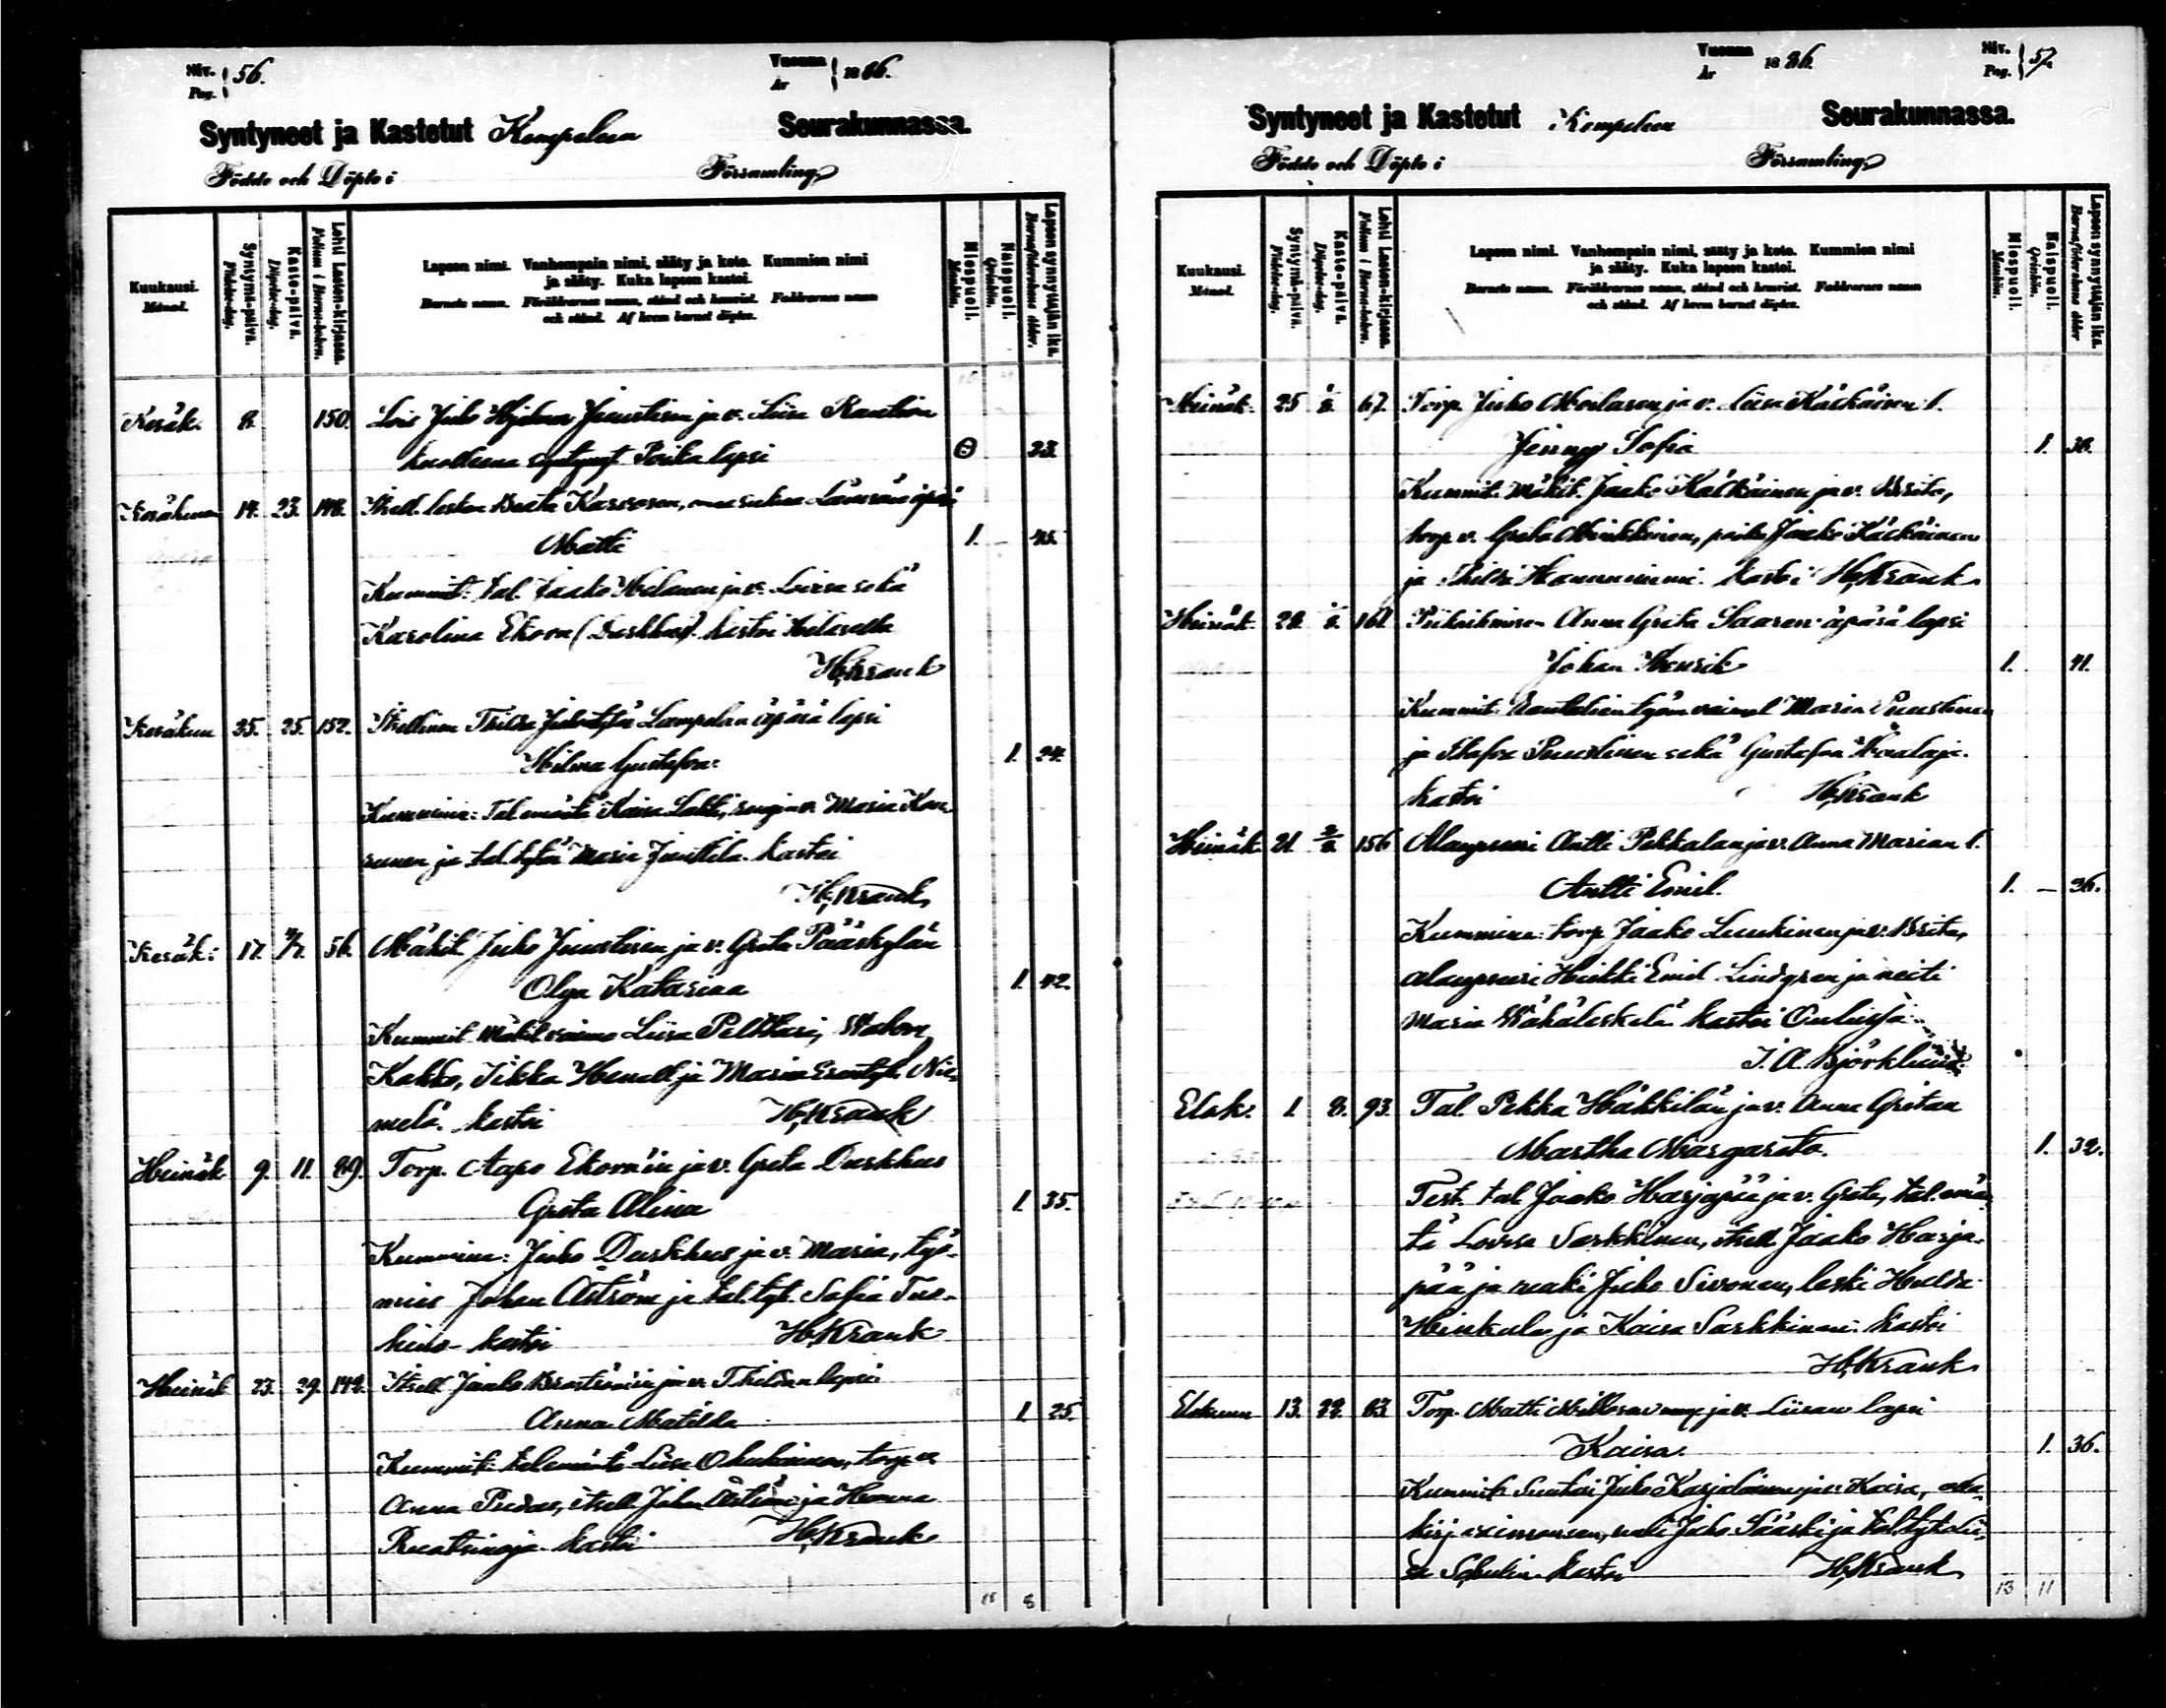 Siv. Pag. 56.
Vuonna År 1886.
Syntyneet ja Kastetut Kempeleen Seurakunnassa.
Födde och Döpte i Församling
Kuukausi. Månad.
Syntymä-päivä. Födelse-dag.
Kaste-päivä. Döpelse-dag.
Lehti Lasten-kirjassa. Folium i Barna-boken.
Lapsen nimi. Vanhempain nimi, sääty ja koto. Kummien nimi
ja sääty. Kuka lapsen kastoi.
Barnets namn. Föräldrarnes namn, stånd och hemvist. Faddrarnes namn
och stånd. Af hvem barnet döptes.
Miespuoli. Mankön.
Naispuoli. Qvinkön.
Lapsen synnyttäjän ikä. Barnaföderskans ålder.
Kesäk. 8. 150. Lois Juho Hjalmar Juustisen ja v. Liisa Raution
kuolleena syntynyt Poika lapsi 23.
Kesäkuun 14. 23. 148. Itsell. lesken Beata Karvosen,
Matti 1. - 45.
Kummit: tal. Jaako Helanen ja v. Lovisa sekä
Karolina Ekorn (Durkhus). kastoi
H. Krank
Kesäkuu 25. 152. Itsellinen Lampelan äpärä lapsi
Hilma Gustafva. 1. 24.
Kummina: Tal. emäntä Kaisa Lahti, v. Maria
ja tal. tytär Maria Junttila. kastoi
H. Krank
Kesäk: 17. 4/7. 56. Mäkit. Juho Juustisen ja v. Greta Pääskylän
Olga Katarina 1. 42.
Kummit Mäkit. vaimo Liisa Pelttari,
Kakko, ja Maria Nie-
melä. kastoi H. Krank
Heinäk 9. 11. 89. Torp. Aapo Ekorn'in ja v. Greta Durkhus
Greta Alina 1. 35.
Kummina: Juho Durkhus ja v. Maria, työ-
mies Johan Åström ja tal. tyt. Sofia Tuo-
kastoi H. Krank
Heinäk 23. 29. 142. Itsell. Jaako ja v. Thildan lapsi
Anna Matilda 1. 25.
Kummit: tal. emäntä Liisa torp. v.
Anna Pudas, itsell. Johan Åström ja Hanna
kastoi H. Krank
Vuonna År 1886.
Siv. Pag. 57.
Syntyneet ja Kastetut Kempeleen Seurakunnassa.
Födde och Döpte i Församling
Kuukausi. Månad.
Syntymä-päivä. Födelse-dag.
Kaste-päivä. Döpelse-dag.
Lehti Lasten-kirjassa. Folium i Barna-boken.
Lapsen nimi. Vanhempain nimi, sääty ja koto. Kummien nimi
ja sääty. Kuka lapsen kastoi.
Barnets namn. Föräldrarnes namn, stånd och hemvist. Faddrarnes namn
och stånd. Af hvem barnet döptes.
Miespuoli. Mankön.
Naispuoli. Qvinkön.
Lapsen synnyttäjän ikä. Barnaföderskans ålder
Heinäk. 25 1/8. 67. Torp. Juho Moilasen ja v. Liisa Kälkäisen l.
Jenny Sofia 1. 30.
Kummit. Mäkit. Jaako Kälkäinen ja v. Brita,
torp. v. Greta Minkkinen, poika Jaako Kälkäinen
ja Thilda Hannuniemi. kastoi H. Krank
Heinäk. 28. 1/8. 161. Piikaihmisen Anna Greta Saaren äpärä lapsi
Johan Henrik 1. 41.
Kummit: vaimot Maria Puustinen
ja Stafva Puustinen sekä Gustafva
kastoi H. Krank
Heinäk. 21. 2/8. 156 Alaupseeri Antti Pekkalan ja v. Anna Marian l.
Antti Emil. 1. — 36.
Kummina: torp. Jaako Luukinen ja v. Brita,
alaupseeri Heikki Emil Lindgren ja neiti
Maria kastoi Oulussa
J. A. Björklund
Elok. 1. 8. 93. Tal. Pekka Häkkilän ja v. Anna Gretan
Martha Margareta. 1. 32.
Test. tal. Jaako Harjapää ja v. Greta, tal. emän-
tä Lovisa Sarkkinen, itsell. Jaako Harja-
pää ja renki Juho Sivonen, leski Hulda
ja Kaisa Sarkkinen. kastoi
H. Krank
Elokuun 13. 22. 83. Torp. Matti ja v. Liisan lapsi
Kaisa. 1. 36.
Kummit Suutari Juho Karjalainen ja v. Kaisa,
renki Juho Sääski ja tal. tyt.
kastoi H. Krank
13 11